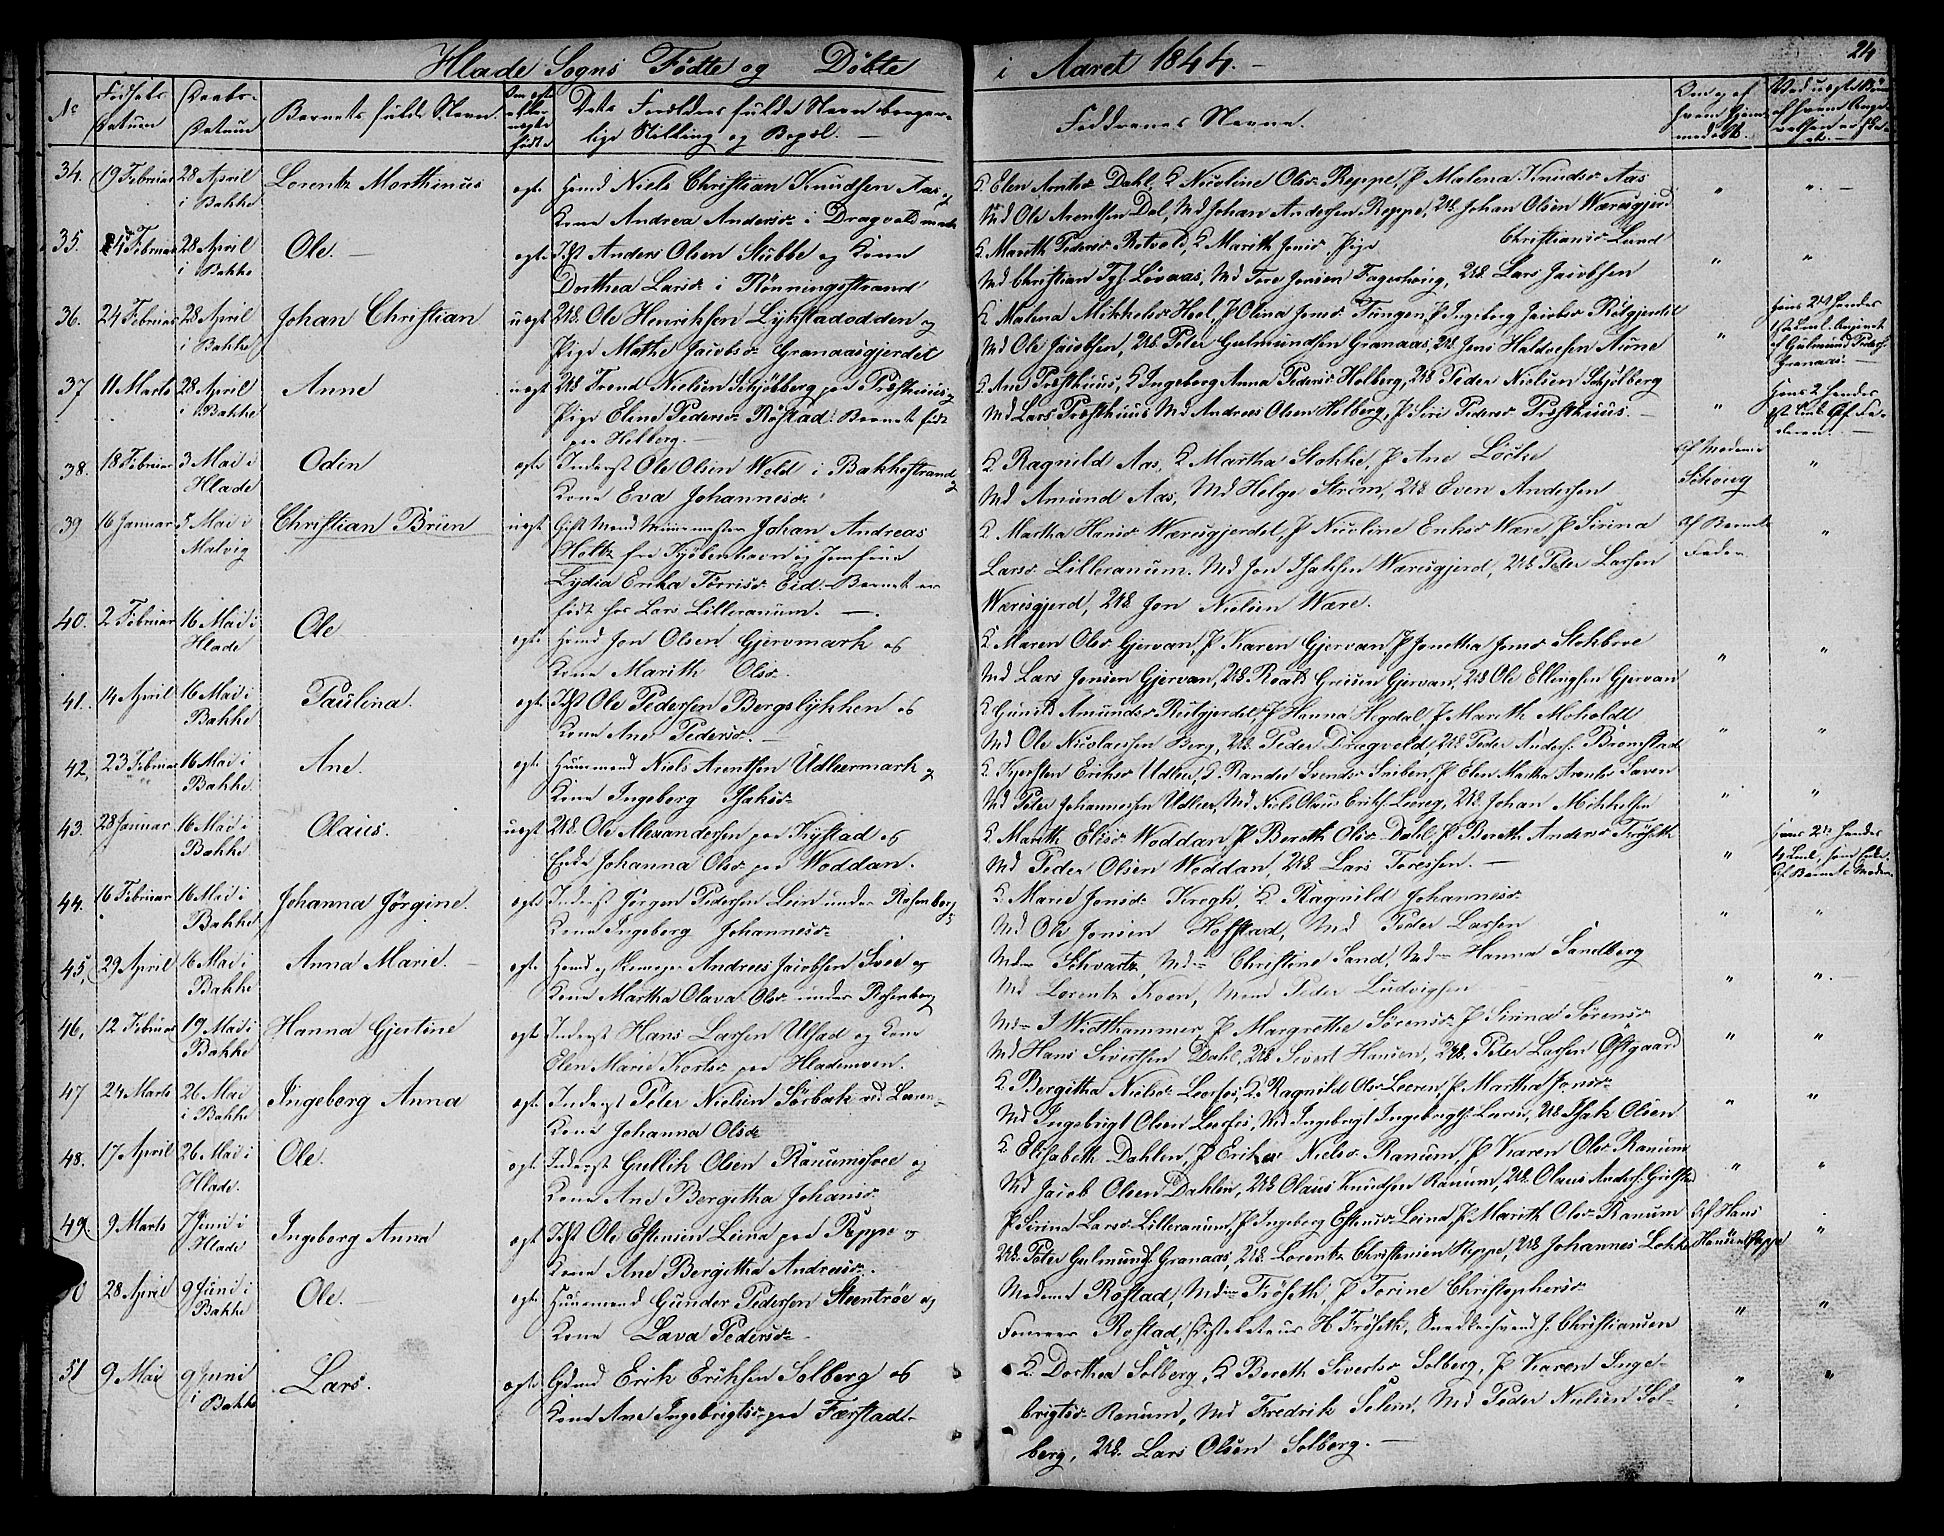 Hlade Sogns Fødte og Døbte i Aaret 1844. 24
No Fødsels Datum Daabs-Datum Barnets fulde Navn. Om egte eller uegte født
Dets Forældres fulde Navn borger-
lige Stilling og Bopæl.
Faddernes Navne.
34. 19 Februar 28 April i Bakke Lorentz Morthinus egte
Hmd Niels Christian Knudsen Aas og
Kone Andrea Andersd. i Dragvoldmark
K. Elen Arntsd. Dahl, K Nicoline Olsd. Reppe, P Malena Knudsd. Aas
Md Ole Arentsen Dal, Md Johan Andersen Reppe, UK. Johan Olsen Wæresgjerd
35. 24 Februar 28 April i Bakke Ole. egte
Ist Anders Olsen Stubbe og Kone
Dorthea Larsd. i Rønningsstrand
K. Mareth Pedersd. Rotvold, K Marith Jonsd. Pige Christiansd. Lund
Md Christian Løvaas, Md Tore Jonsen Fagerhoug, UK. Lars Jacobsen
36. 24 Februar 28 April i Bakke Johan Christian uegt
UK. Ole Henriksen Lykstadodden og
Pige Mathe Jacobsd. Granaasgjerdet
K Malena Mikkelsd. Heel, P Olina Jonsd. Tungen, P Ingeborg Jacobsd. Røtgjerdet
Md Ole Jacobsen, UK. Peter Gulmundsen Granaas, UK Jens Haldorsen Aune
37 11 Marts 28 April i Bakke Anne uegt
UK Trond Nielsen Schjølberg paa Presthuus og
Pige Elene Pedersd. Røstad. Barnet født
paa Holberg.
K Ane Presthuus, K Ingeborg Anna Pedersd. Holberg, UK Peder Nielsen Schjølberg
Md Lars Presthuus Md Andreas Olsen Holberg, P Siri Pedersd. Presthuus.
38. 18 Februar 3 Mai i Hlade Odin egte
Inderst Ole Olsen Wold i Bakkestrand og
Kone Eva Johannesd.
K Ragnild Aas, K Martha Stokke, P Ane Løcke
Md Amund Aas, Md Helge Strøm, UK Even Andersen
Af Madame Schoug
39 16 Januar 5 Mai i Malvig Christian Brüen uegt
Gift Mand Johan Andreas
Holtz fra Kjøbenhavn og Jomfrue
Lydia Erika Torrisd. Eid. Barnet er
født hos Lars Lilleranum.
K Martha Hansd. Wæresgjerdet, P Nicoline Eriksd. Wære, P Sirina
Larsd. Lilleranum. Md Jon Isaksen Wæresgjerd, UK Peter Larsen
Wæresgjerd, UK. Jon Nielsen Wære.
Af Barnets Fader
40. 2 Februar 16 Mai i Hlade Ole egte
Hmd Jon Olsen Gjervmark og
Kone Marith Olsd.
K Maren Olsd. Gjervan, P Karen Gjervan, P Jonetha Jonsd. Stokbroe
Md Lars Jonsen Gjervan, UK. Roald Gresen Gjervan, UK Ole Ellingsen Gjervan
41. 14 April 16 Mai i Bakke Paulina. egte
Ist Ole Pedersen Bergslykken og
Kone Ane Pedersd.
K Gunild Amundsd. Røtgjerdet, P Hanna Hegdal, P Mareth Moholdt
Md Ole Nicolaisen Berg, UK. Peder Dragvold, UK Peder Anders. Bromstad
42. 23 Februar 16 Mai i Bakke. Ane. egte
Huusmand Niels Arentsen Udleermark og
Kone Ingeborg Isaksd.
K Kjersten Eriksd. Udleer, K Randee Svendsd. Sneben, P Elen Martha Arentsd. Saven
Md Peter Johannesen Udleer, Md Niels Olaus Eriks. Leereg, UK Johan Mikkelsen
43. 28 Januar 16 Mai i Bakke Olaus. uegt
UK. Ole Alexandersen paa Kystad og
Enke Johanna Olsd. paa Woddan.
K. Mareth Elisd. Woddan, P Bereth Olsd. Dahl, P Bereth Andersd. Frøseth
Md Peder Olsen Woddan, UK. Lars Toresen.
44. 16 Februar 16 Mai i Bakke Johanna Jørgine. egte
Inderst Jørgen Pedersen Lein under Rosenborg og
Kone Ingeborg Johannesd.
K Marie Jonsd. Krogh, K Ragnild Johannesd.
Md Ole Jonsen Hoffstad, Md Peder Larsen
45. 29 April 16 Mai i Bakke Anna Marie. egte
Hmd og Andreas Jacobsen Svee og
Kone Martha Olava Olsd. under Rosenborg
Mdm Schvartz, Mdm Christine Sand, Mdm Hanna Sandberg
Md Lorentz Koen, Mand Peder Ludvigsen
46. 12 Februar 19 Mai i Bakke Hanna Gjertine egte
Inderst Hans Larsen Ulstad og Kone
Elen Marie Kortsd. paa Hlademoen.
Mdm I Widthammer, P Margrethe Sørensd. P Sirina Sørensd.
Md Hans Sivertsen Dahl, UK Sivert Hansen, UK. Peter Larsen Østgaard
47 24 Marts 26 Mai i Bakke Ingeborg Anna egte
Inderst Peter Nielsen Sørbak ved Leeren
Kone Johanna Olsd.
K Bergitha Nielsd. Leerfos, K. Ragnild Olsd. Leeren, P. Martha Jonsd.
Md Ingebrigt Olsen Leerfos, Md Ingebrigt Ingebrigts. Leeren, UK Isak Olsen
48. 17 April 26 Mai i Hlade. Ole. egte
Inderst Gullik Olsen Ranumshove og
Kone Ane Bergitha Johansd.
K Elisabeth Dahlen, P Erika Nielsd. Ranum, P Karen Olsd. Ranum
Md Jacob Olsen Dahlen, UK Olaus Knudsen Ranum, UK. Olaus Anders.
49. 9 Marts 7 Juni i Hlade Ingeborg Anna egte
Ist Ole Estensen Leina paa Reppe og
Kone Ane Bergitha Andreasd.
P Sirina Larsd. Lilleranum, P Ingeborg Estensd. Leina, P. Marith Olsd. Ranum
UK. Peter Gulmunds. Granaas, UK. Lorentz Christensen Reppe, UK Johannes Løkke
Af Hans Hansen Reppe
50 28 April 9 Juni i Bakke Ole. egte
Huusmand Gunder Pedersen Steentrøe og
Kone Lava Pedersd.
Madame Rostad, Mdm Frøseth, P Torine Christophersd.
Rostad, H Frøseth, Snedkersvend J. Christiansen
51 9 Mai 9 Juni i Bakke Lars. egte
Gdmd Erik Eriksen Solberg og
Kone Ane Ingebrigtsd. paa Færstad
K. Dorthea Solberg, K Bereth Sivertsd. Solberg, P Karen Inge-
brigtsd. Ranum, Md Fredrik Solem, Md Peder Nielsen Sol-
berg, UK. Lars Olsen Solberg.